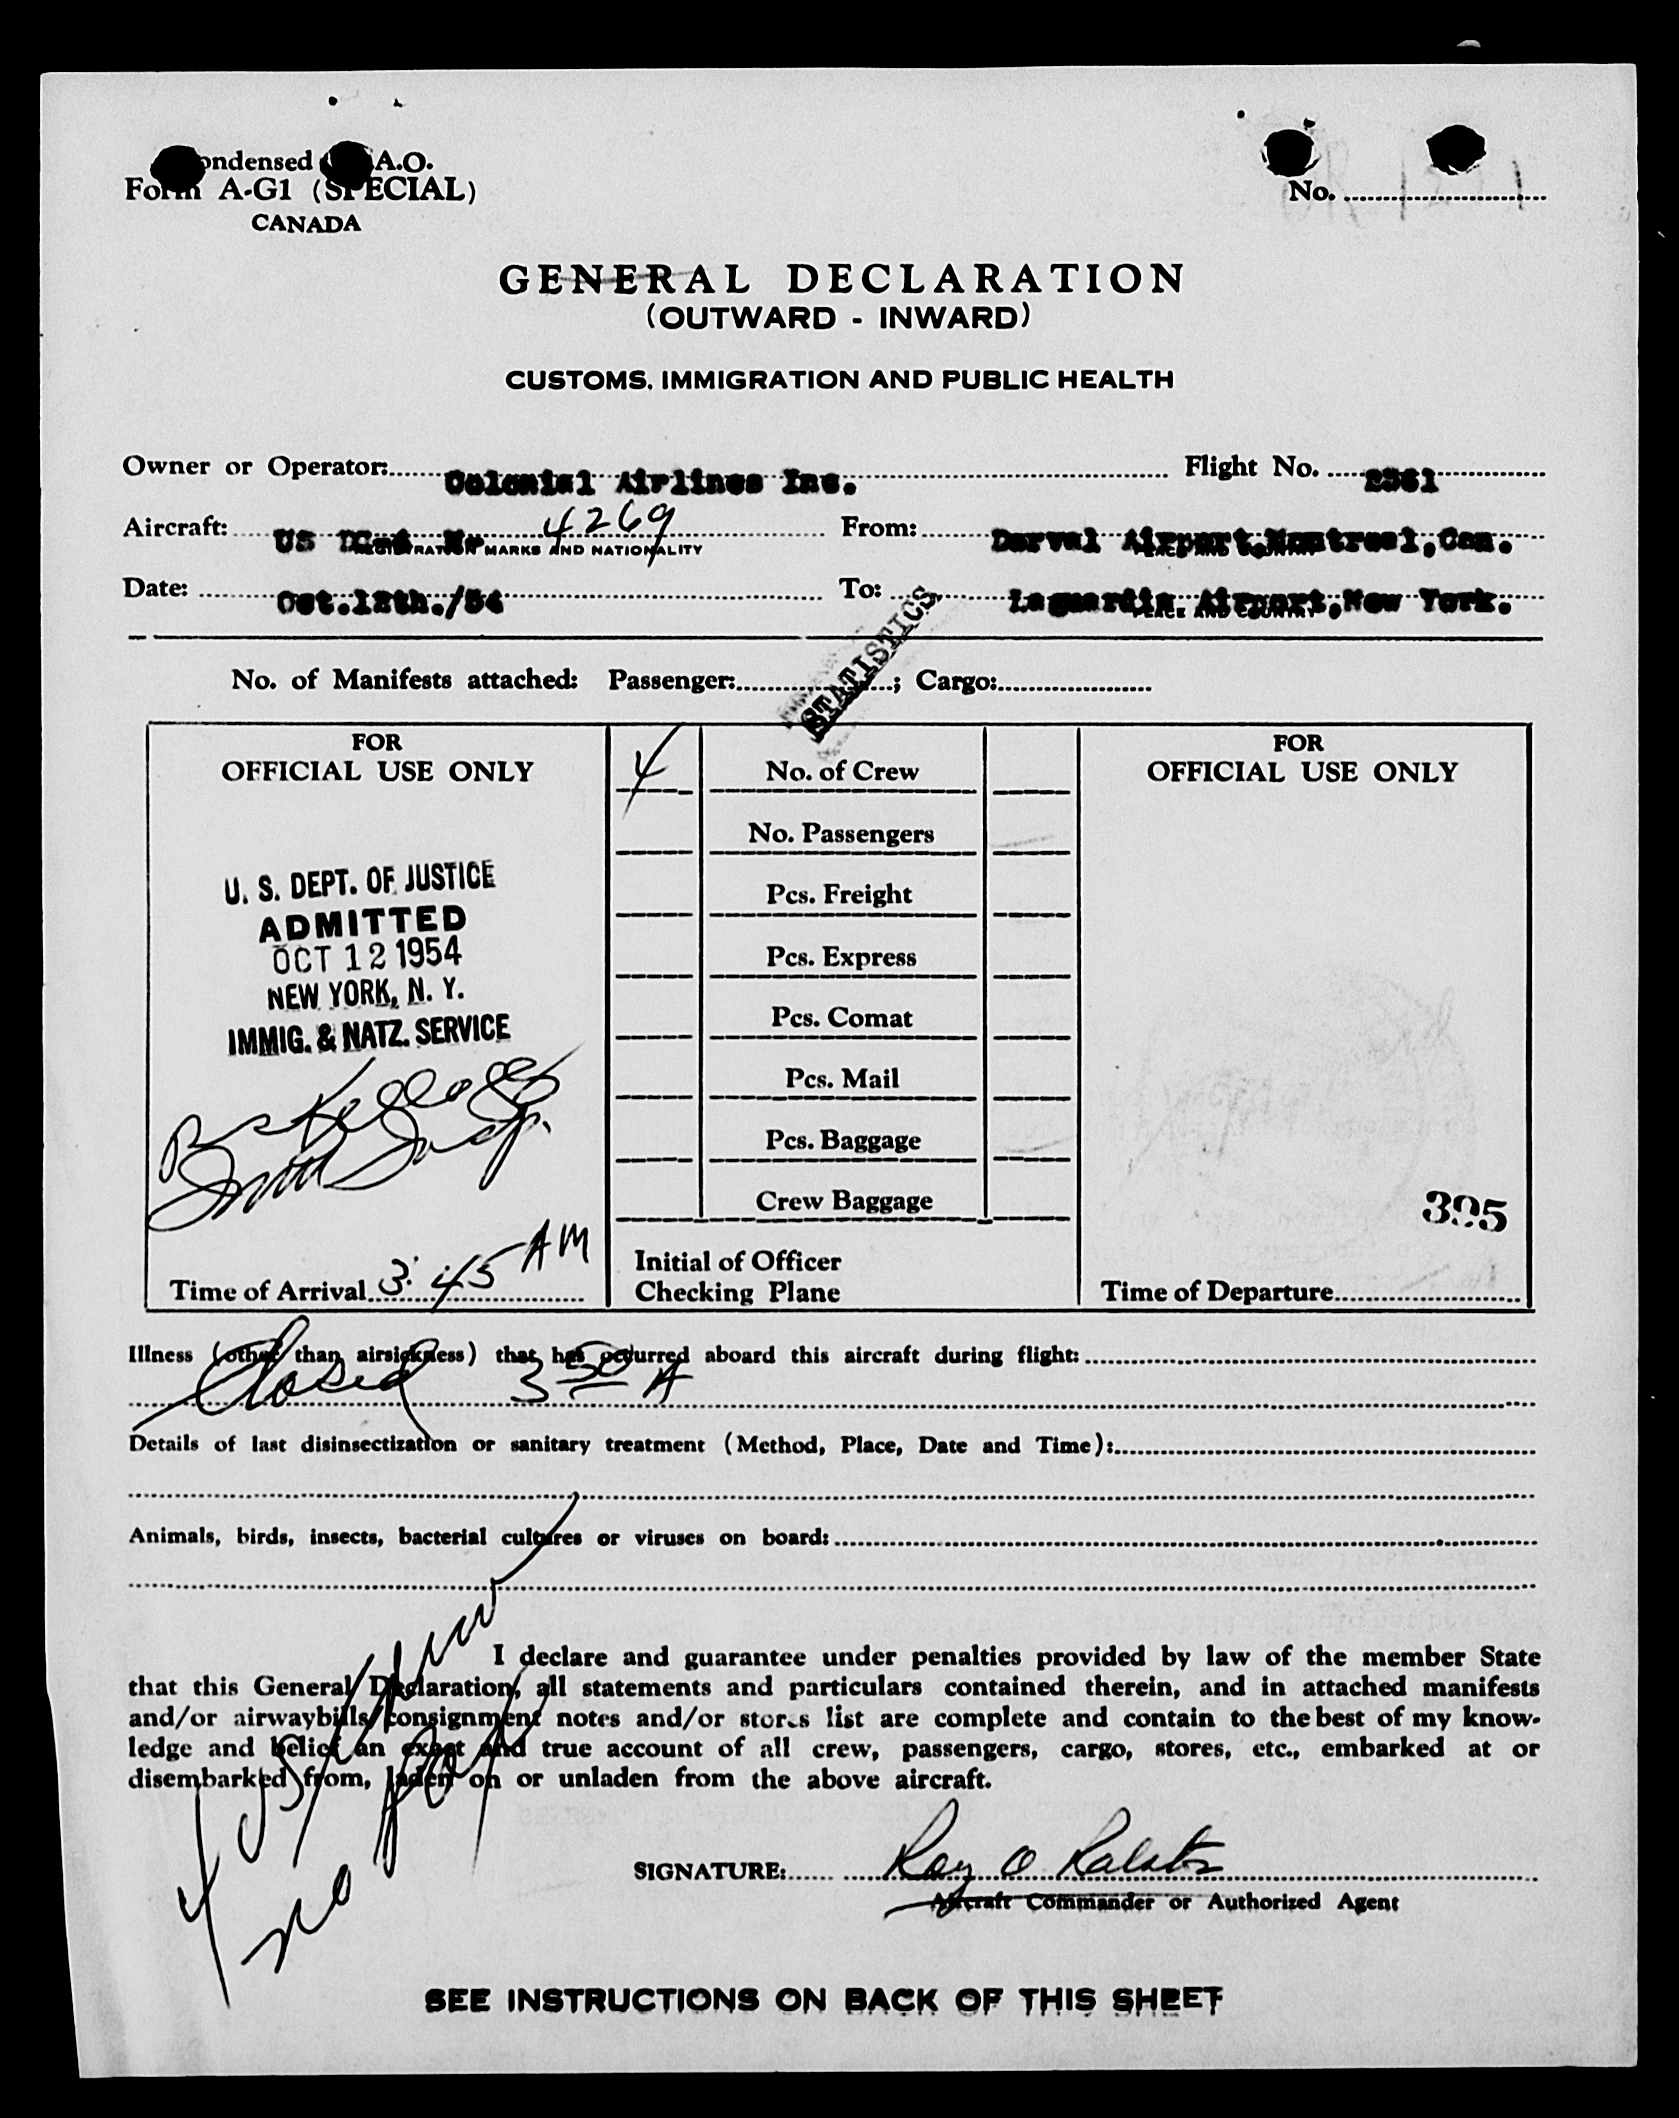 ondensed A.O.
Form A-G1 (SPECIAL)
CANADA
No.
GENERAL DECLARATION
(OUTWARD - INWARD)
CUSTOMS, IMMIGRATION AND PUBLIC HEALTH
Owner or Operator: Colonial Airlines Inc. Flight No. 2361
Aircraft: US 4269 From: Dorval Airport, Montreal, Can.
MARKS AND NATIONALITY
Date: Oct.12th./54 To: Laguardia Airport, New York.
PLACE AND COUNTRY
STATISTICS
No. of Manifests attached: Passenger: ; Cargo:
FOR
OFFICIAL USE ONLY
U. S. DEPT. OF JUSTICE
ADMITTED
OCT 12 1954
NEW YORK, N. Y.
IMMIG. & NATZ. SERVICE
Kellogg
Imm Insp.
Time of Arrival 3:45 AM
4 No. of Crew
No. Passengers
Pcs. Freight
Pcs. Express
Pcs. Comat
Pcs. Mail
Pcs. Baggage
Crew Baggage
Initial of Officer
Checking Plane
FOR
OFFICIAL USE ONLY
395
Time of Departure
Illness (other than airsickness) that has occurred aboard this aircraft during flight:
Closed 3 50 A
Details of last disinsectization or sanitary treatment (Method, Place, Date and Time):
Animals, birds, insects, bacterial cultures or viruses on board:
I declare and guarantee under penalties provided by law of the member State
that this General Declaration, all statements and particulars contained therein, and in attached manifests
and/or airwaybills/consignment notes and/or stores list are complete and contain to the best of my know-
ledge and belief an exact and true account of all crew, passengers, cargo, stores, etc., embarked at or
disembarked from, laden on or unladen from the above aircraft.
4 US
no
SIGNATURE: Ray O
Aircraft Commander or Authorized Agent
SEE INSTRUCTIONS ON BACK OF THIS SHEET